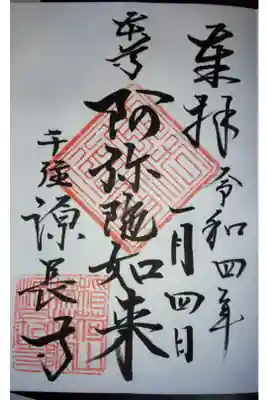 奉拝
令和四年
一月四日
本尊
阿弥陀如来
千住
源長寺